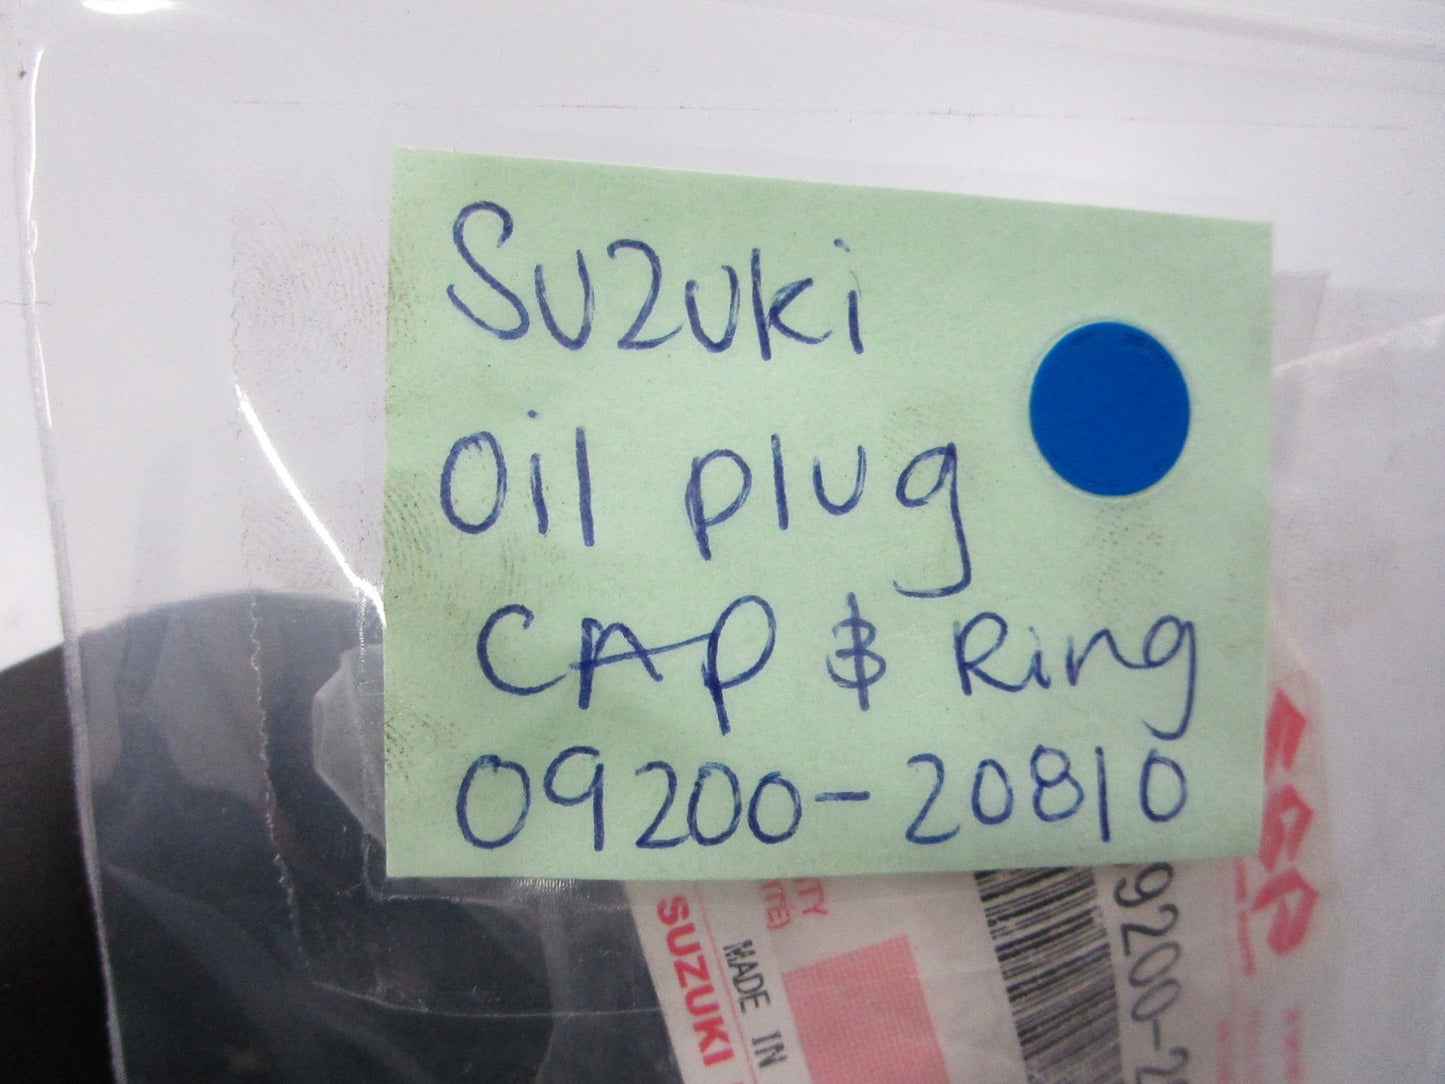 Suzuki
Oil plug
CAP & Ring
09200-20810
SUZUKI
MADE IN
9200-2